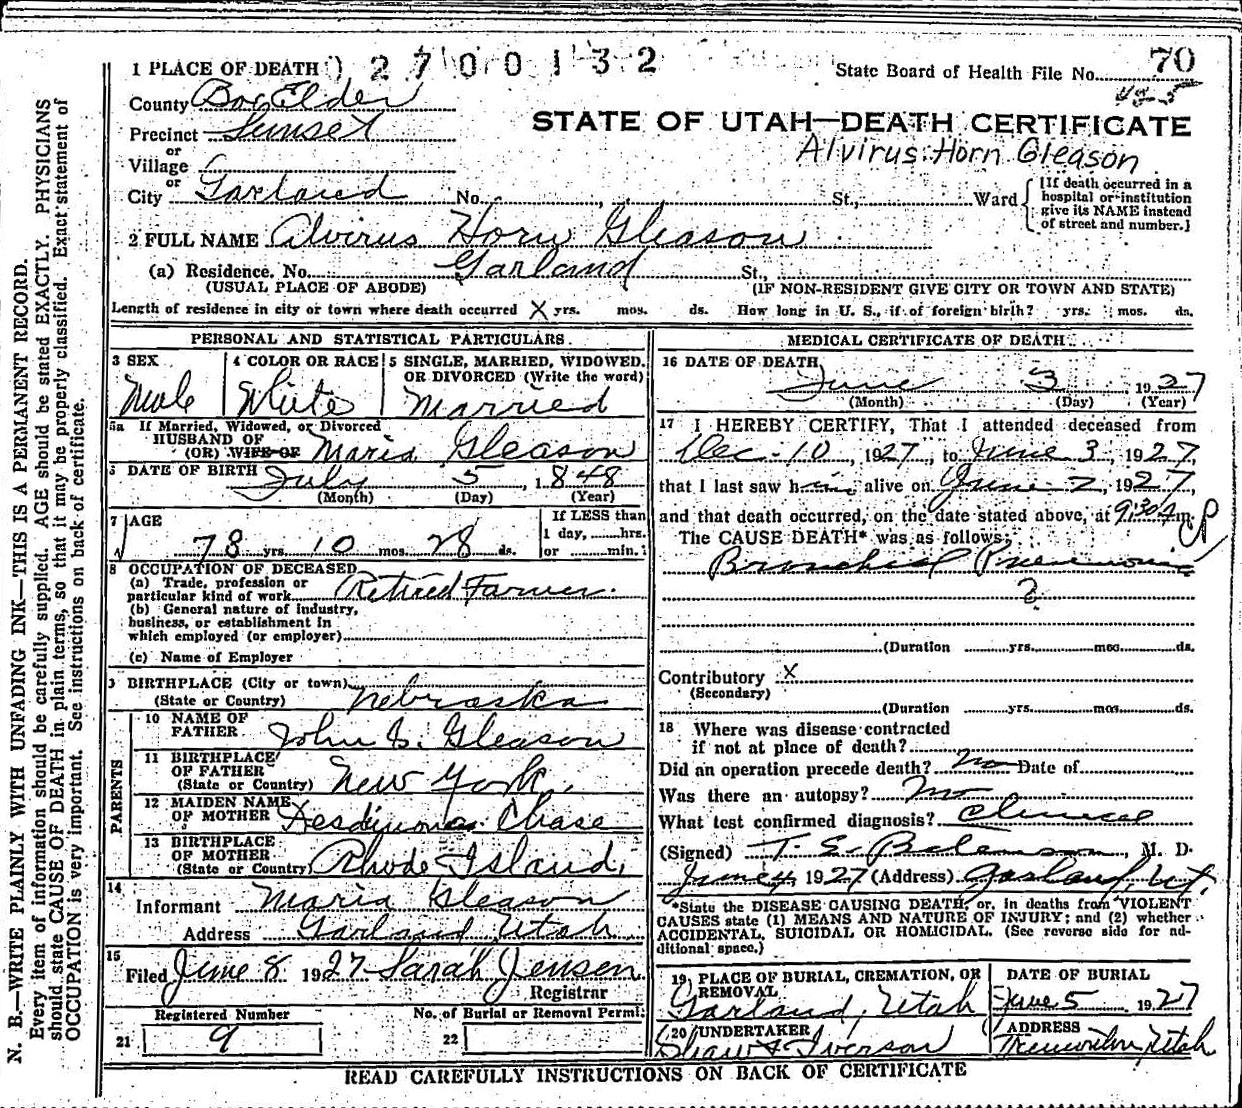 1 PLACE OF DEATH 2700132
State Board of Health File No. 70
County Box Elder
STATE OF UTAH—DEATH CERTIFICATE
Precinct Sunset
Alvirus Horn Gleason
or
Village
or
City Garland No. St., Ward
[If death occurred in a
hospital or institution
give its NAME instead
of street and number.]
2 FULL NAME Alvirus Horn Gleason
(a) Residence. No. Garland St.,
(USUAL PLACE OF ABODE) (IF NON-RESIDENT GIVE CITY OR TOWN AND STATE)
Length of residence in city or town where death occurred X yrs. mos. ds. How long in U. S., if of foreign birth? yrs. mos. ds.
PERSONAL AND STATISTICAL PARTICULARS.
3 SEX
Male
4 COLOR OR RACE
White
5 SINGLE, MARRIED, WIDOWED.
OR DIVORCED (Write the word)
Married
5a If Married, Widowed, or Divorced
HUSBAND OF
(OR) WIFE OF Maria Gleason
6 DATE OF BIRTH July 5, 1848
(Month) (Day) (Year)
7 AGE
78 yrs. 10 mos. 28 ds.
If LESS than
1 day, hrs.
or min.
8 OCCUPATION OF DECEASED
(a) Trade, profession or
particular kind of work Retired Farmer.
(b) General nature of industry,
business, or establishment in
which employed (or employer)
(c) Name of Employer
9 BIRTHPLACE (City or town)
(State or Country) Nebraska
PARENTS
10 NAME OF
FATHER John S. Gleason
11 BIRTHPLACE
OF FATHER
(State or Country) New York.
12 MAIDEN NAME
OF MOTHER Desdimona Chase
13 BIRTHPLACE
OF MOTHER
(State or Country) Rhode Island,
14
Informant Maria Gleason
Address Garland Utah
15
Filed June 8 1927 Sarah Jensen
Registrar
Registered Number No. of Burial or Removal Permit
21 9 22
MEDICAL CERTIFICATE OF DEATH
16 DATE OF DEATH
June 3 1927
(Month) (Day) (Year)
17 I HEREBY CERTIFY, That I attended deceased from
Dec. 10, 1927, to June 3, 1927,
that I last saw him alive on June 2, 1927,
and that death occurred, on the date stated above, at 9:30 A m.
The CAUSE DEATH* was as follows;
Bronchial Pneumonia
?
(Duration yrs. mos. ds.
Contributory X
(Secondary)
(Duration yrs. mos. ds.
18 Where was disease contracted
if not at place of death?
Did an operation precede death? no Date of
Was there an autopsy? no
What test confirmed diagnosis? Clinical
(Signed) T. S. M. D.
June 4, 1927 (Address) Garland, Ut.
*State the DISEASE CAUSING DEATH, or, in deaths from VIOLENT
CAUSES state (1) MEANS AND NATURE OF INJURY; and (2) whether
ACCIDENTAL, SUICIDAL OR HOMICIDAL. (See reverse side for ad-
ditional space.)
19 PLACE OF BURIAL, CREMATION, OR
REMOVAL
Garland, Utah
DATE OF BURIAL
June 5 1927
20 UNDERTAKER
Shaw & Iverson
ADDRESS
Tremonton, Utah
READ CAREFULLY INSTRUCTIONS ON BACK OF CERTIFICATE
N. B.—WRITE PLAINLY WITH UNFADING INK—THIS IS A PERMANENT RECORD.
Every item of information should be carefully supplied. AGE should be stated EXACTLY. PHYSICIANS
should state CAUSE OF DEATH in plain terms, so that it may be properly classified. Exact statement of
OCCUPATION is very important. See instructions on back of certificate.